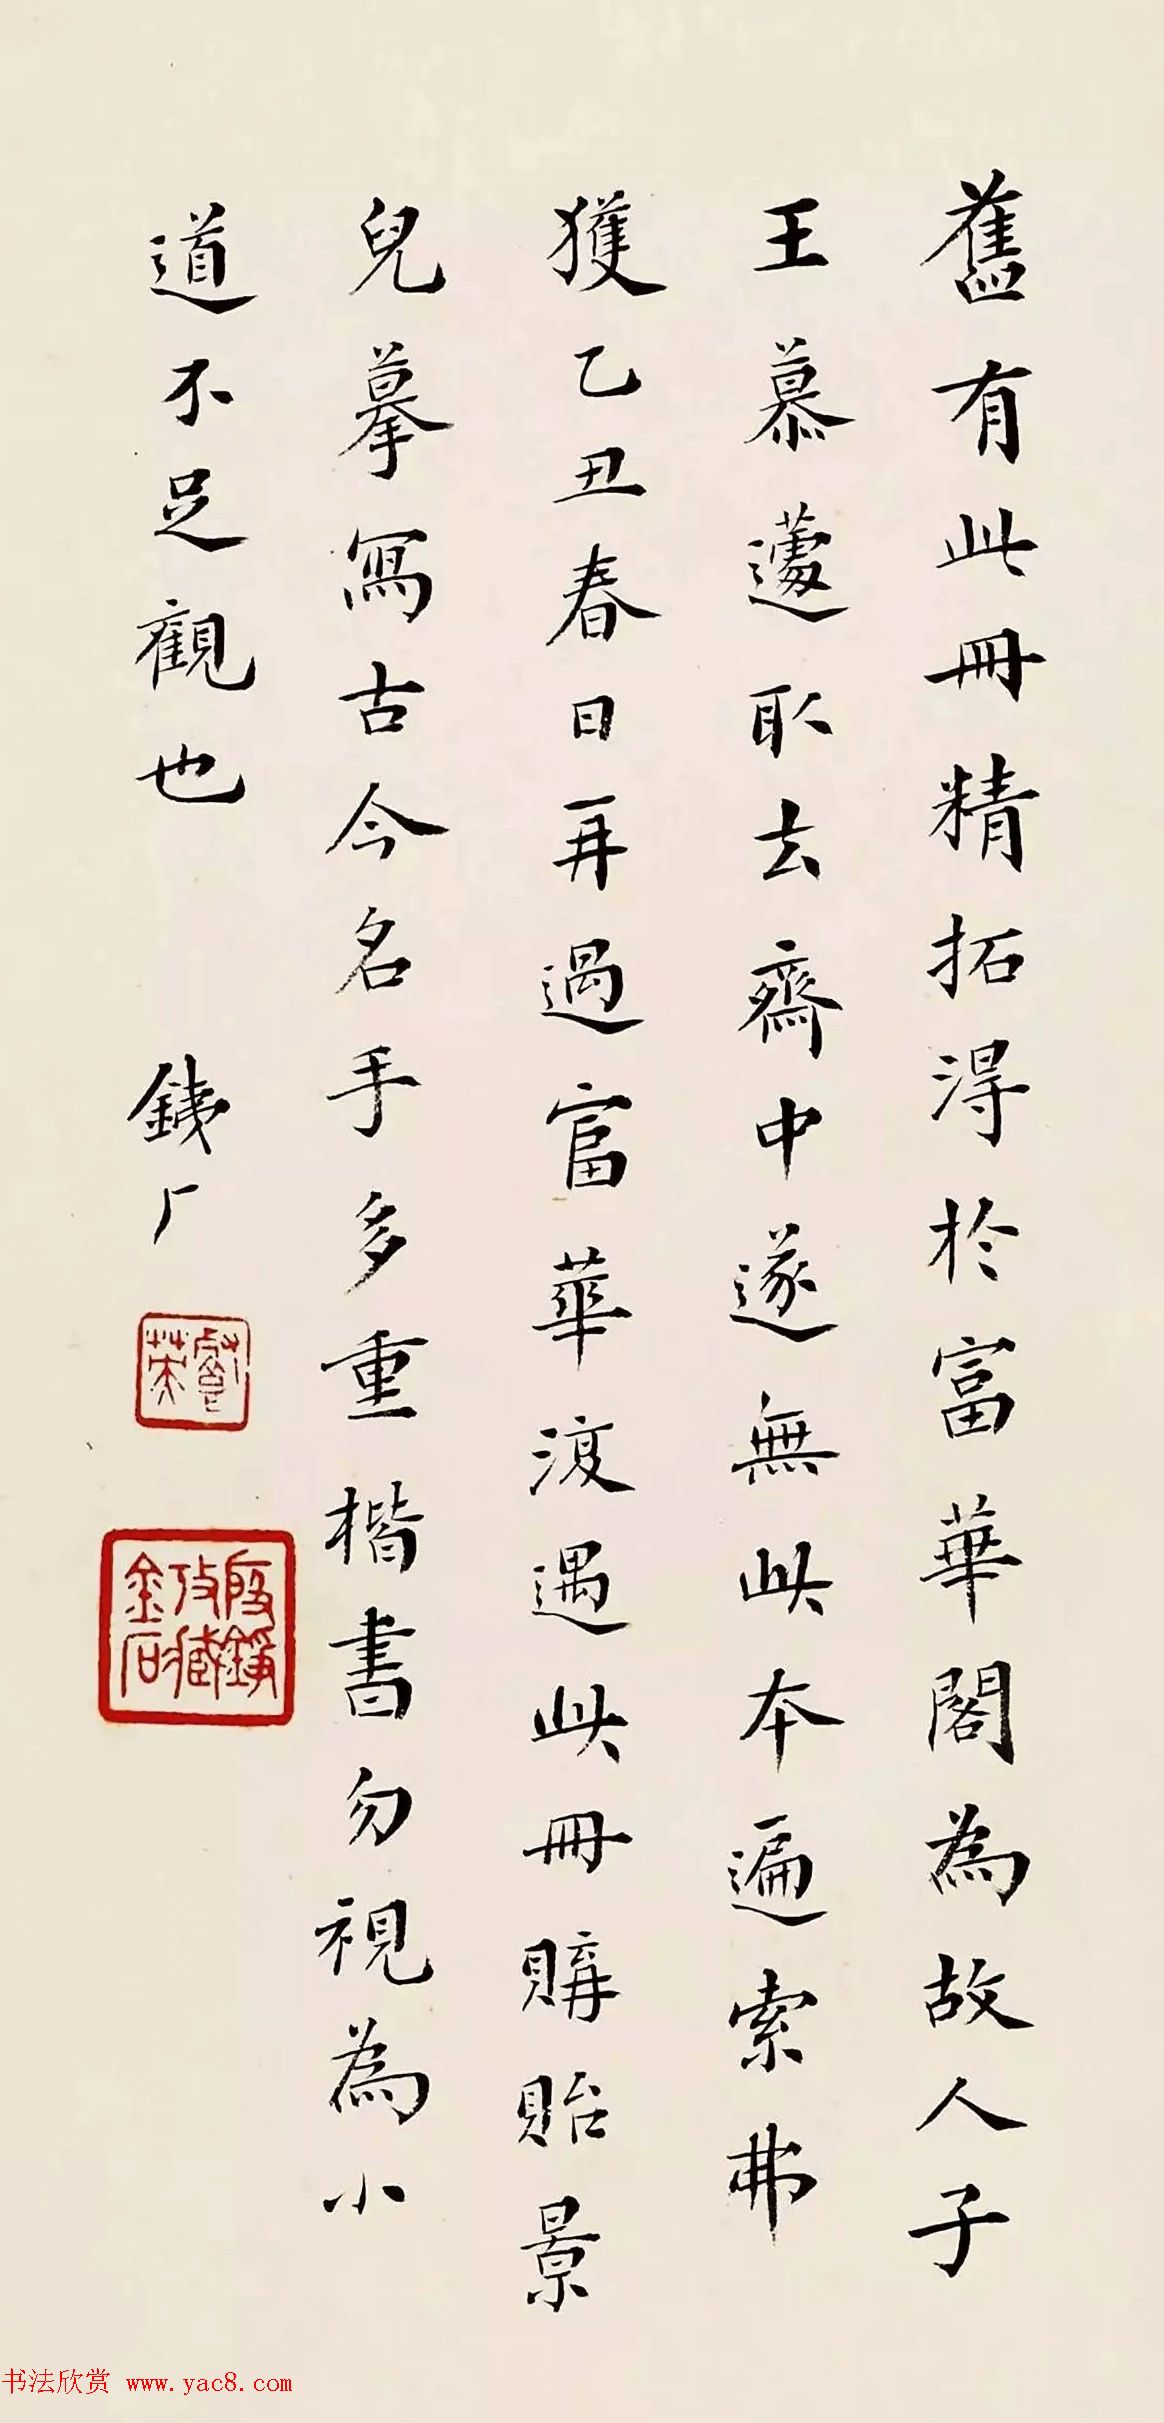 舊有此冊精拓得於富華閣為故人子
王慕蘧取去齋中遂無此本遍索弗
獲乙丑春日再過富華復遇此冊購貽景
兒摹寫古今名手多重楷書勿視為小
道不足觀也
銕厂
書法欣赏 www.yac8.com